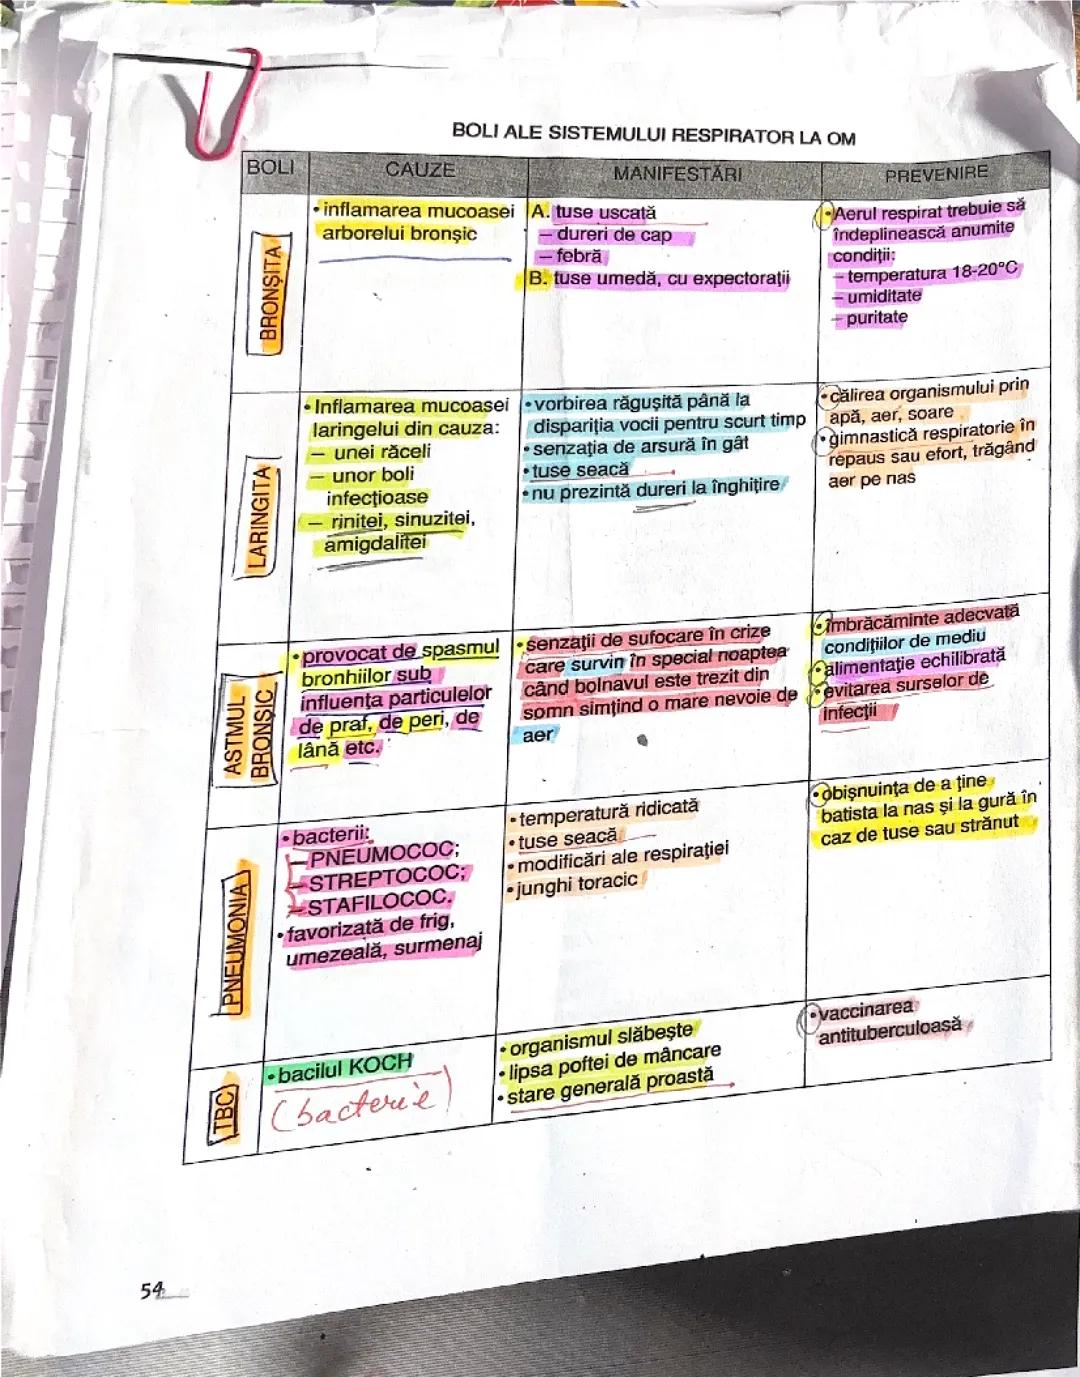 BOLI ALE SISTEMULUI RESPIRATOR LA OM
BOLI CAUZE MANIFESTĂRI PREVENIRE
BRONȘITA
• inflamarea mucoasei
arborelui bronșic
A. tuse uscată
– dureri de cap
– febră
B. tuse umedă, cu expectorații
• Aerul respirat trebuie să
îndeplinească anumite
condiții:
– temperatura 18-20°C
– umiditate
– puritate
LARINGITA
• Inflamarea mucoasei
laringelui din cauza:
– unei răceli
– unor boli
infecțioase
– rinitei, sinuzitei,
amigdalitei
• vorbirea răgușită până la
dispariția vocii pentru scurt timp
• senzația de arsură în gât
• tuse seacă
• nu prezintă dureri la înghițire
• călirea organismului prin
apă, aer, soare
• gimnastică respiratorie în
repaus sau efort, trăgând
aer pe nas
ASTMUL
BRONȘIC
• provocat de spasmul
bronhiilor sub
influența particulelor
de praf, de peri, de
lână etc.
• senzații de sufocare în crize
care survin în special noaptea
când bolnavul este trezit din
somn simțind o mare nevoie de
aer
• îmbrăcăminte adecvată
condițiilor de mediu
• alimentație echilibrată
• evitarea surselor de
infecții
PNEUMONIA
• bacterii:
– PNEUMOCOC;
– STREPTOCOC;
– STAFILOCOC.
• favorizată de frig,
umezeală, surmenaj
• temperatură ridicată
• tuse seacă
• modificări ale respirației
• junghi toracic
• obișnuința de a ține
batista la nas și la gură în
caz de tuse sau strănut
TBC
• bacilul KOCH
(bacterie)
• organismul slăbește
• lipsa poftei de mâncare
• stare generală proastă
• vaccinarea
antituberculoasă
54